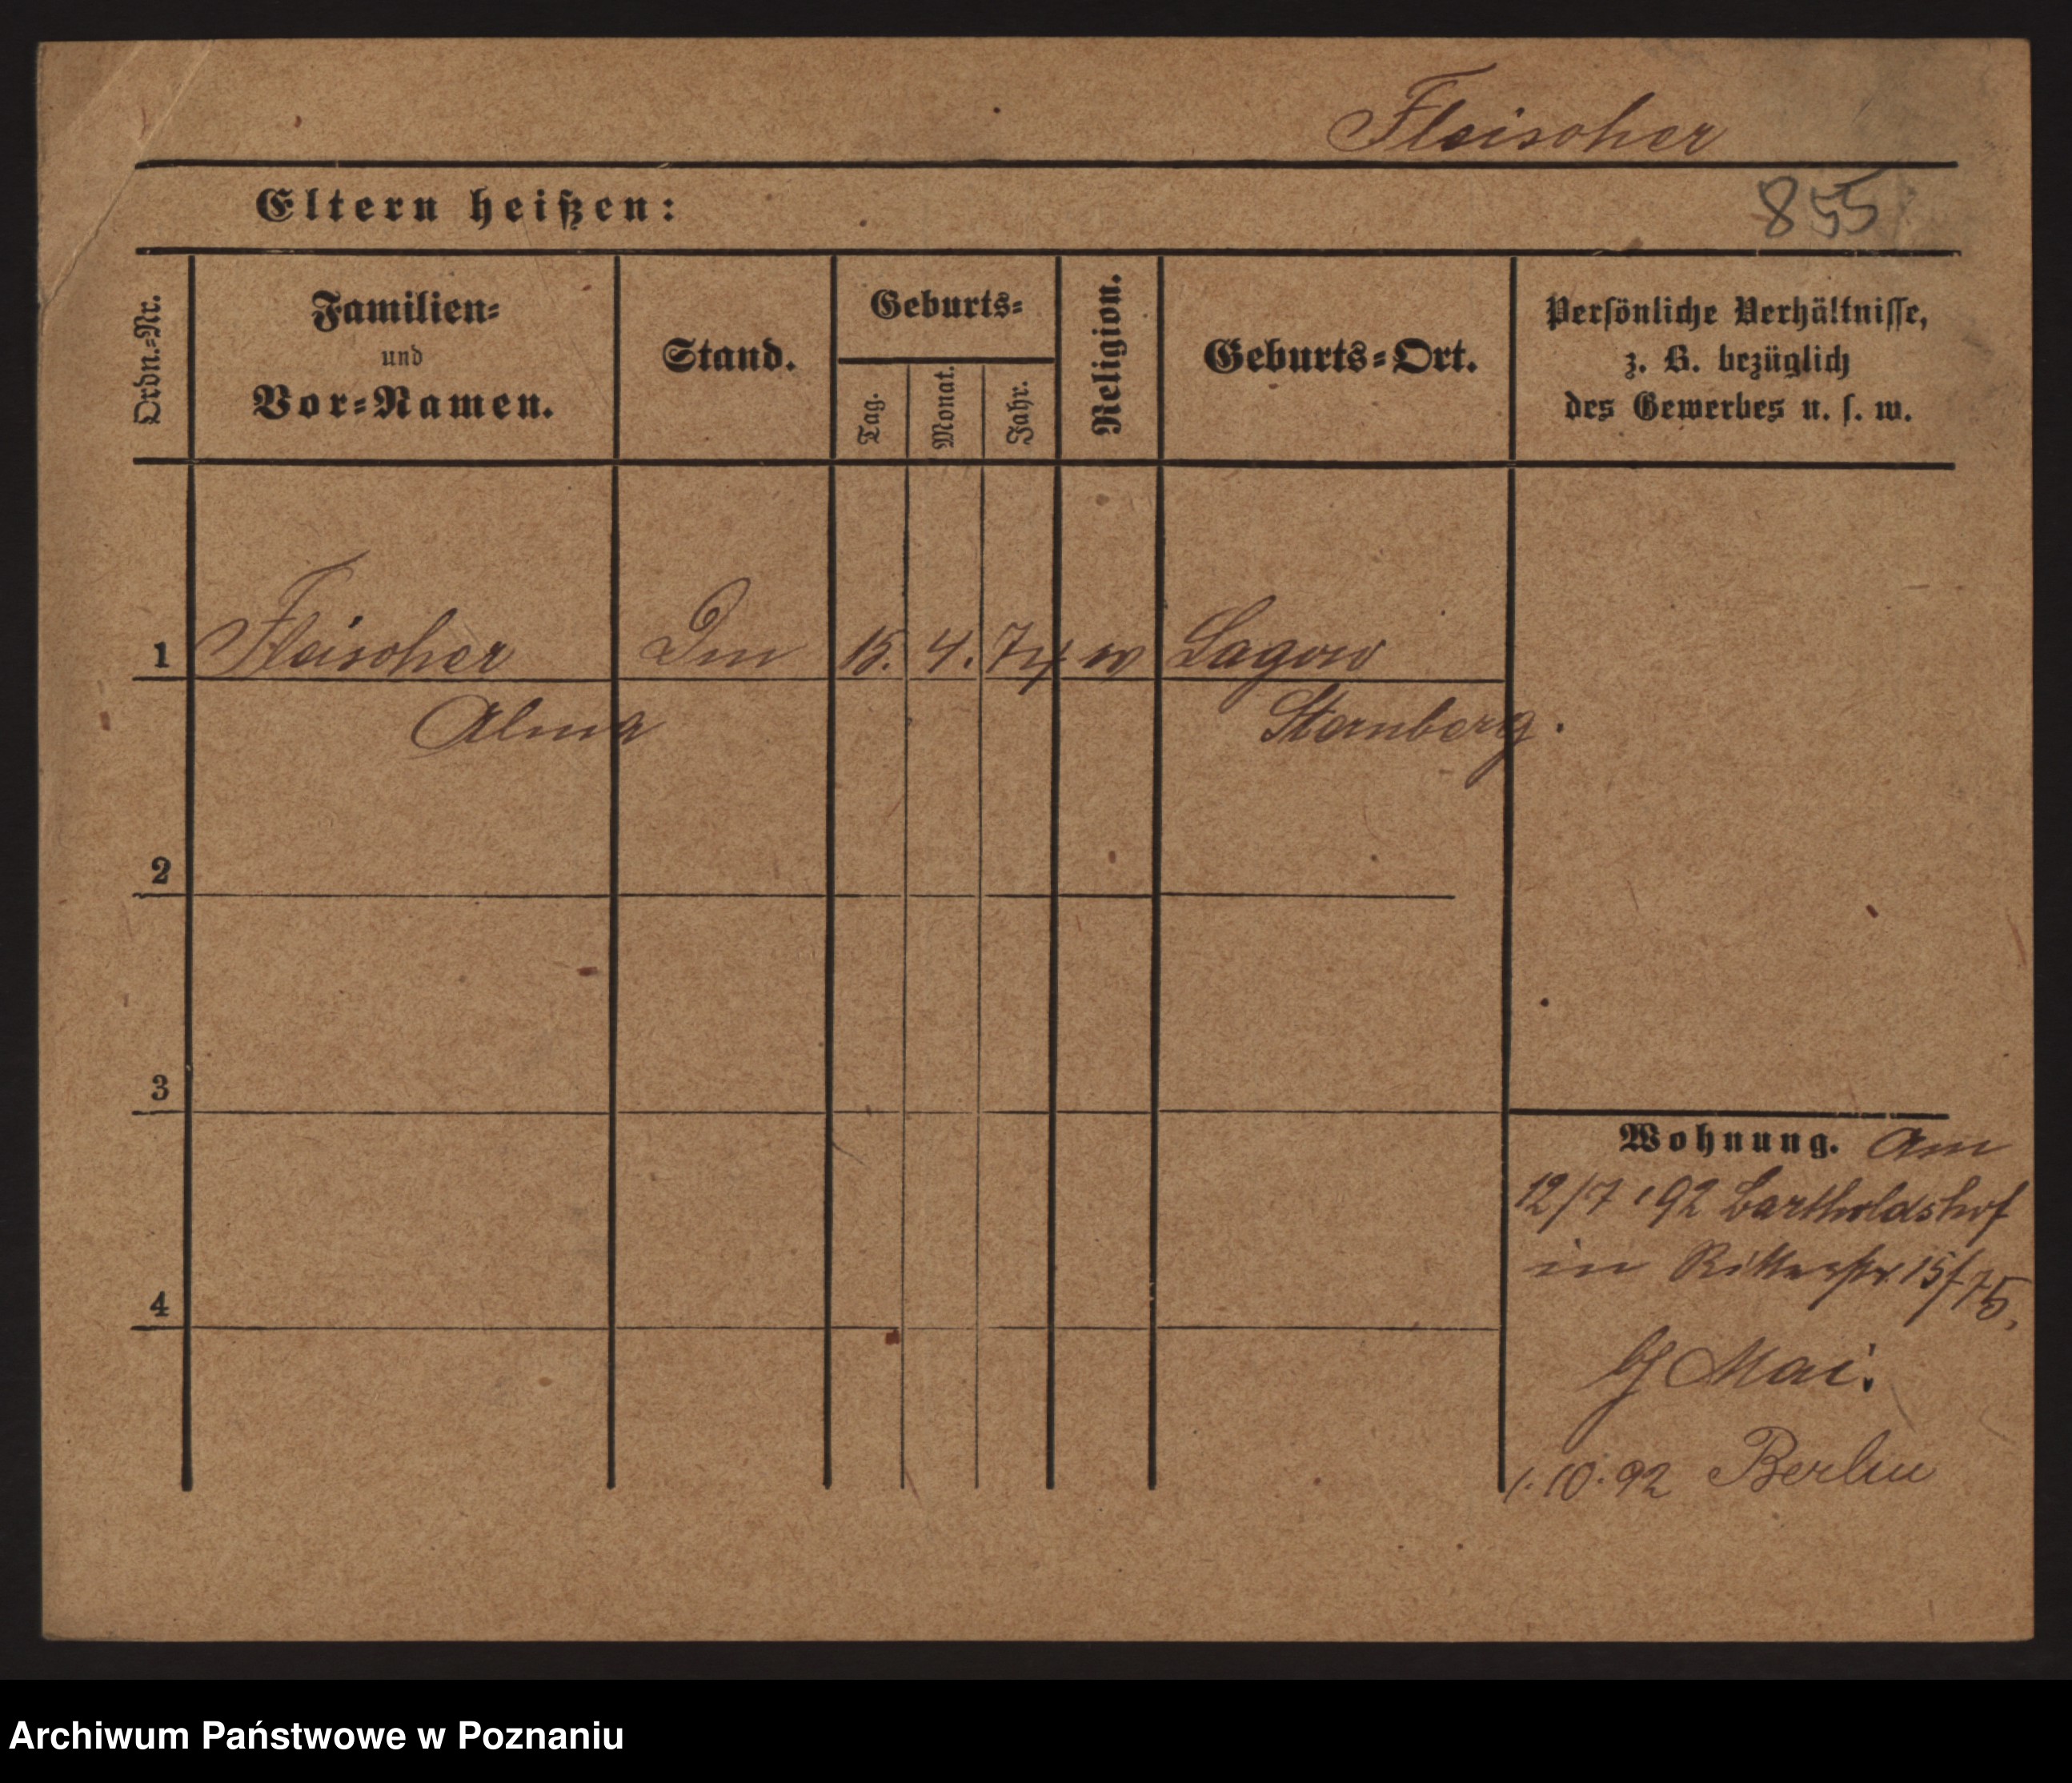 Fleischer
Eltern heißen:
855
Ordn.-Nr.
Familien-
und
Vor-Namen.
Stand.
Geburts-
Tag.
Monat.
Jahr.
Religion.
Geburts-Ort.
Persönliche Verhältnisse,
z. B. bezüglich
des Gewerbes u. s. w.
1 Fleischer 15. 4. 74 Lagow
Alma Sternberg.
2
3
4
Wohnung. Am
12/7 '92 Bartholdshof
in Ritterstr. 15/
Mai.
1.10.92 Berlin
Archiwum Państwowe w Poznaniu